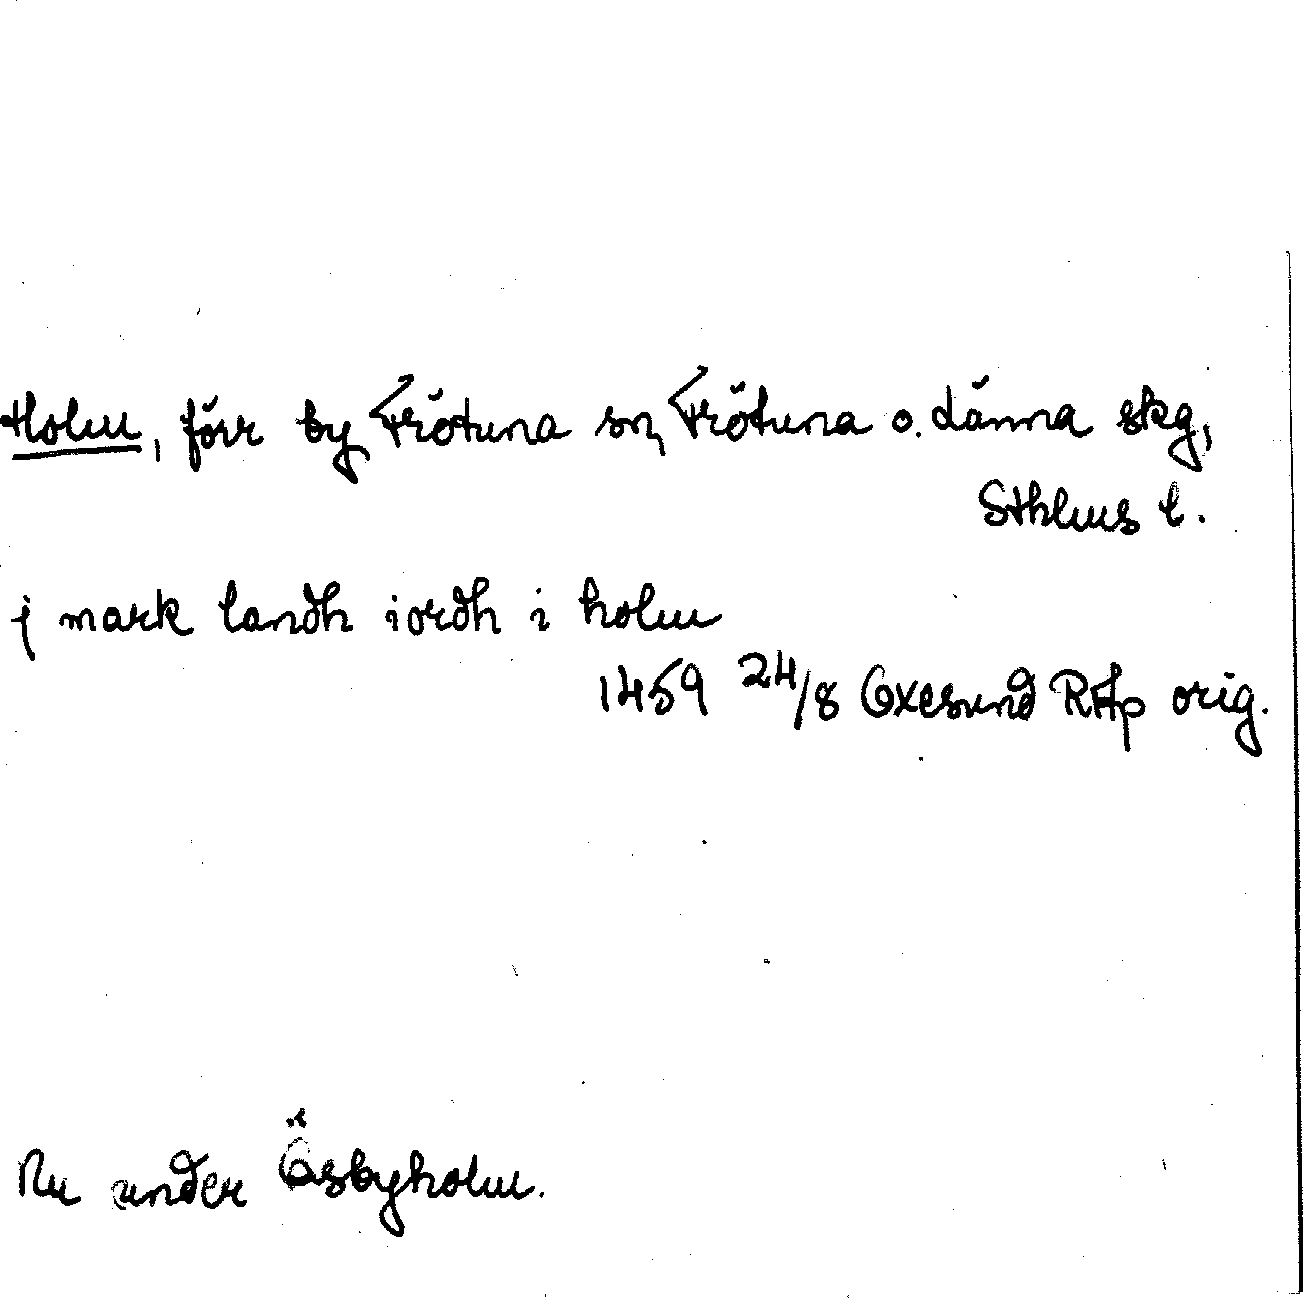 Holm, förr by, Frötuna sn, Frötuna o. Länna skg,
Sthlms l.
j mark landh iordh i holm
1459 24/8 Oxesund RAp orig.
Nu under Ösbyholm.